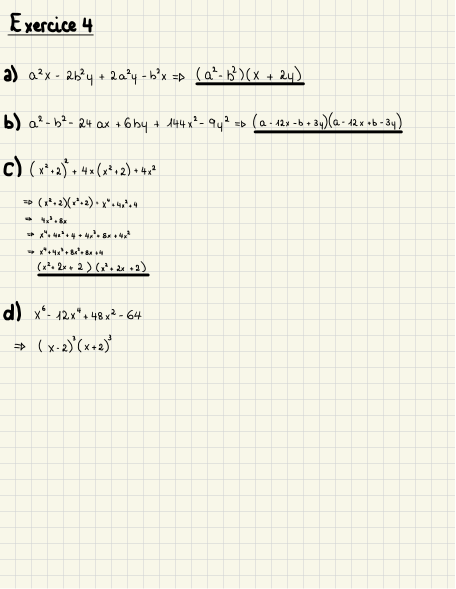 Exercice 4
a) a²x - 2b²y + 2a²y - b²x ⇒ (a² - b²)(x + 2y)
b) a² - b² - 24 ax + 6by + 144x² - 9y² ⇒ (a - 12x - b + 3y)(a - 12x + b - 3y)
c) (x² + 2)² + 4x (x² + 2) + 4x²
⇒ (x² + 2)(x² + 2) = x⁴ + 4x² + 4
⇒ 4x³ + 8x
⇒ x⁴ + 4x² + 4 + 4x³ + 8x + 4x²
⇒ x⁴ + 4x³ + 8x² + 8x + 4
(x² + 2x + 2) (x² + 2x + 2)
d) x⁶ - 12x⁴ + 48x² - 64
⇒ (x - 2)³ (x + 2)³